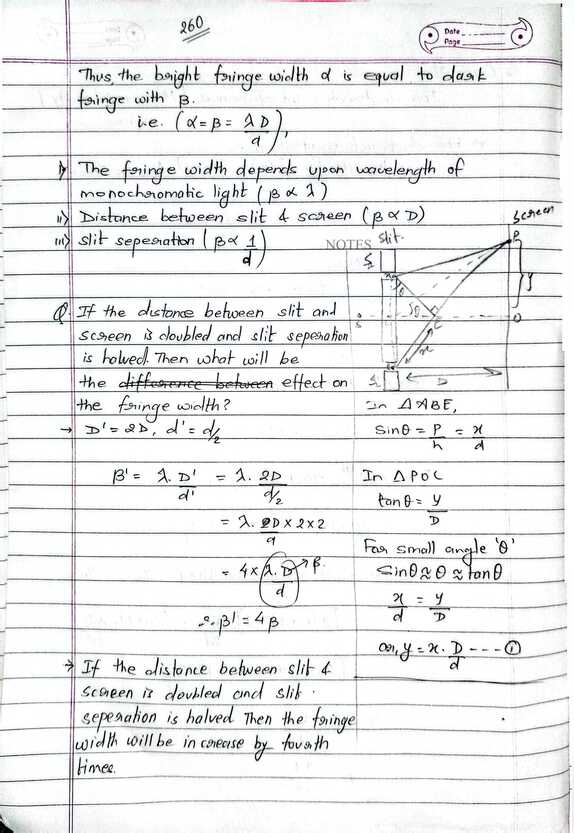 260
Date
Page
Thus the bright fringe width α is equal to dark
fringe with β.
i.e. (α = β = λD/d),
i) The fringe width depends upon wavelength of
monochromatic light (β ∝ λ)
ii) Distance between slit & screen (β ∝ D)
iii) slit seperation (β ∝ 1/d)
NOTES
Slit
Screen
P
y
O
D
x
θ
Q. If the distance between slit and
screen is doubled and slit seperation
is halved. Then what will be
the difference between effect on
the fringe width?
→ D' = 2D, d' = d/2
β' = λ.D'/d' = λ.2D/d/2
= λ.2D×2×2/d
= 4×λ.D/d → β
∴ β' = 4β
→ If the distance between slit &
screen is doubled and slit
seperation is halved Then the fringe
width will be increase by fourth
times.
In △ABE,
sinθ = P/h = x/d
In △POC
tanθ = y/D
For small angle 'θ'
sinθ ≈ θ ≈ tanθ
x/d = y/D
or, y = x.D/d --- ①